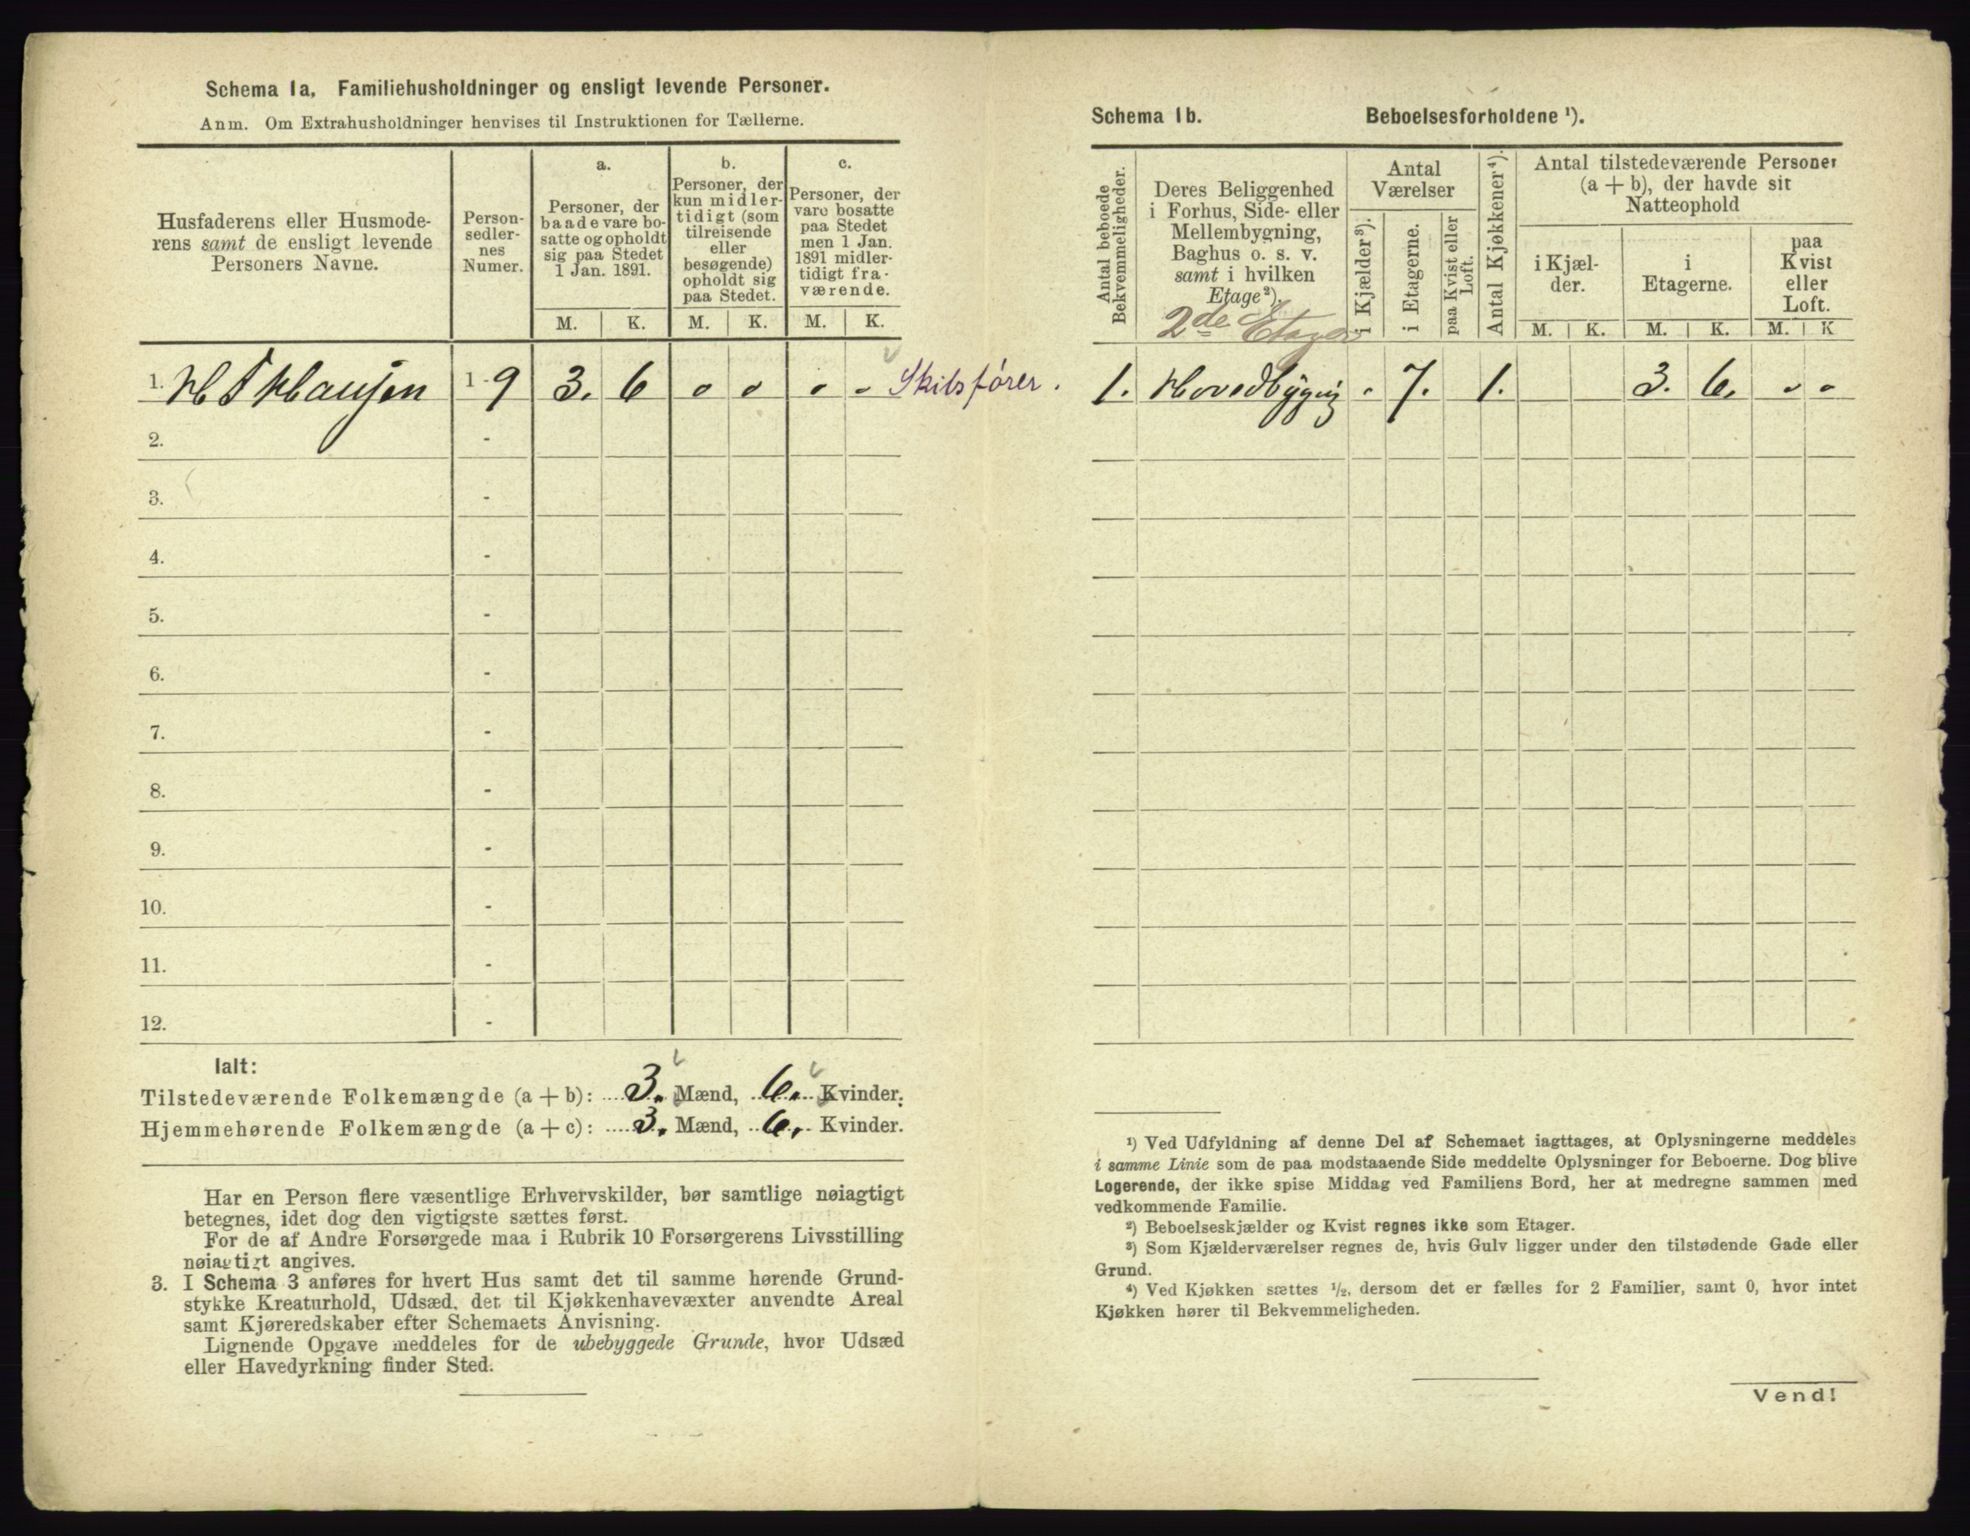 Schema 1a. Familiehusholdninger og ensligt levende Personer.
Anm. Om Extrahusholdninger henvises til Instruktionen for Tællerne.
Husfaderens eller Husmode-
rens samt de ensligt levende
Personers Navne.
Person-
sedler-
nes
Numer.
a.
Personer, der
baade vare bo-
satte og opholdt
sig paa Stedet
1 Jan. 1891.
b.
Personer, der
kun midler-
tidigt (som
tilreisende
eller
besøgende)
opholdt sig
paa Stedet.
c.
Personer, der
vare bosatte
paa Stedet
men 1 Jan.
1891 midler-
tidigt fra-
værende.
M. K. M. K. M. K.
1. H T Hansen 1-9 3. 6 o o o o Skibsfører.
2. -
3. -
4. -
5. -
6. -
7. -
8. -
9. -
10. -
11. -
12. -
Ialt:
Tilstedeværende Folkemængde (a + b): 3. Mænd, 6. Kvinder.
Hjemmehørende Folkemængde (a + c): 3. Mænd, 6. Kvinder.
Har en Person flere væsentlige Erhvervskilder, bør samtlige nøiagtigt
betegnes, idet dog den vigtigste sættes først.
For de af Andre Forsørgede maa i Rubrik 10 Forsørgerens Livsstilling
nøiagtigt angives.
3. I Schema 3 anføres for hvert Hus samt det til samme hørende Grund-
stykke Kreaturhold, Udsæd, det til Kjøkkenhavevæxter anvendte Areal
samt Kjøreredskaber efter Schemaets Anvisning.
Lignende Opgave meddeles for de ubebyggede Grunde, hvor Udsæd
eller Havedyrkning finder Sted.
Schema 1b. Beboelsesforholdene ¹).
Antal beboede
Bekvemmeligheder.
Deres Beliggenhed
i Forhus, Side- eller
Mellembygning,
Baghus o. s. v.
samt i hvilken
Etage²).
2de Etager
Antal
Værelser
i Kjælder³).
i Etagerne.
paa Kvist eller
Loft.
Antal Kjøkkener⁴).
Antal tilstedeværende Personer
(a + b), der havde sit
Natteophold
i Kjæl-
der.
i
Etagerne.
paa
Kvist
eller
Loft.
M. K. M. K. M. K
1. Hovedbygnig - 7. 1. 3. 6. - -
¹) Ved Udfyldning af denne Del af Schemaet iagttages, at Oplysningerne meddeles
i samme Linie som de paa modstaaende Side meddelte Oplysninger for Beboerne. Dog blive
Logerende, der ikke spise Middag ved Familiens Bord, her at medregne sammen med
vedkommende Familie.
²) Beboelseskjælder og Kvist regnes ikke som Etager.
³) Som Kjælderværelser regnes de, hvis Gulv ligger under den tilstødende Gade eller
Grund.
⁴) Ved Kjøkken sættes ½, dersom det er fælles for 2 Familier, samt 0, hvor intet
Kjøkken hører til Bekvemmeligheden.
Vend!